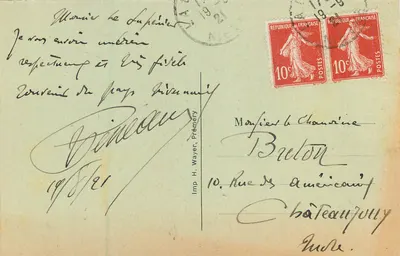 Monsieur le Supérieur
Je vous envoie un
respectueux et très fidèle
souvenir du pays
19/8/21
Imp. H. Wayer, Prémery
RÉPUBLIQUE FRANÇAISE
10c
POSTES
RÉPUBLIQUE FRANÇAISE
10c
POSTES
Monsieur le Chanoine
Breton
10, Rue des Américains
Châteauroux
Indre.